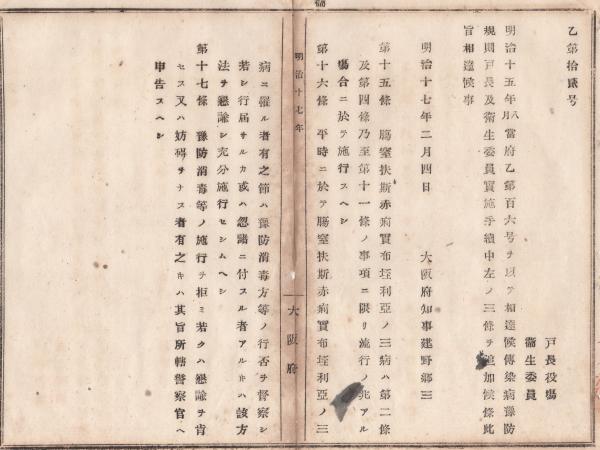 乙第拾貳号
戸長役塲
衞生委員
明治十五年八月當府乙第百六号ヲ以テ相達候傳染病豫防
規則戸長及衞生委員實施手續中左ノ三條ヲ追加候條此
旨相達候事
明治十七年二月四日
大阪府知事建野郷三
第十五條 膓窒扶斯赤痢實布垤利亞ノ三病ハ第二條
及第四條乃至第十一條ノ事項ニ限リ流行ノ兆アル
塲合ニ於テ施行スヘシ
第十六條 平時ニ於テ膓窒扶斯赤痢實布垤利亞ノ三
明治十七年
大阪府
病ニ罹ル者有之節ハ豫防消毒方等ノ行否ヲ督察シ
若シ行届サルカ或ハ忽諸ニ付スル者アルキハ該方
法ヲ懇諭シ充分施行セシムヘシ
第十七條 豫防消毒等ノ施行ヲ拒ミ若クハ懇諭ヲ肯
セス又ハ妨碍ヲナス者有之キハ其旨所轄警察官ヘ
申告スヘシ